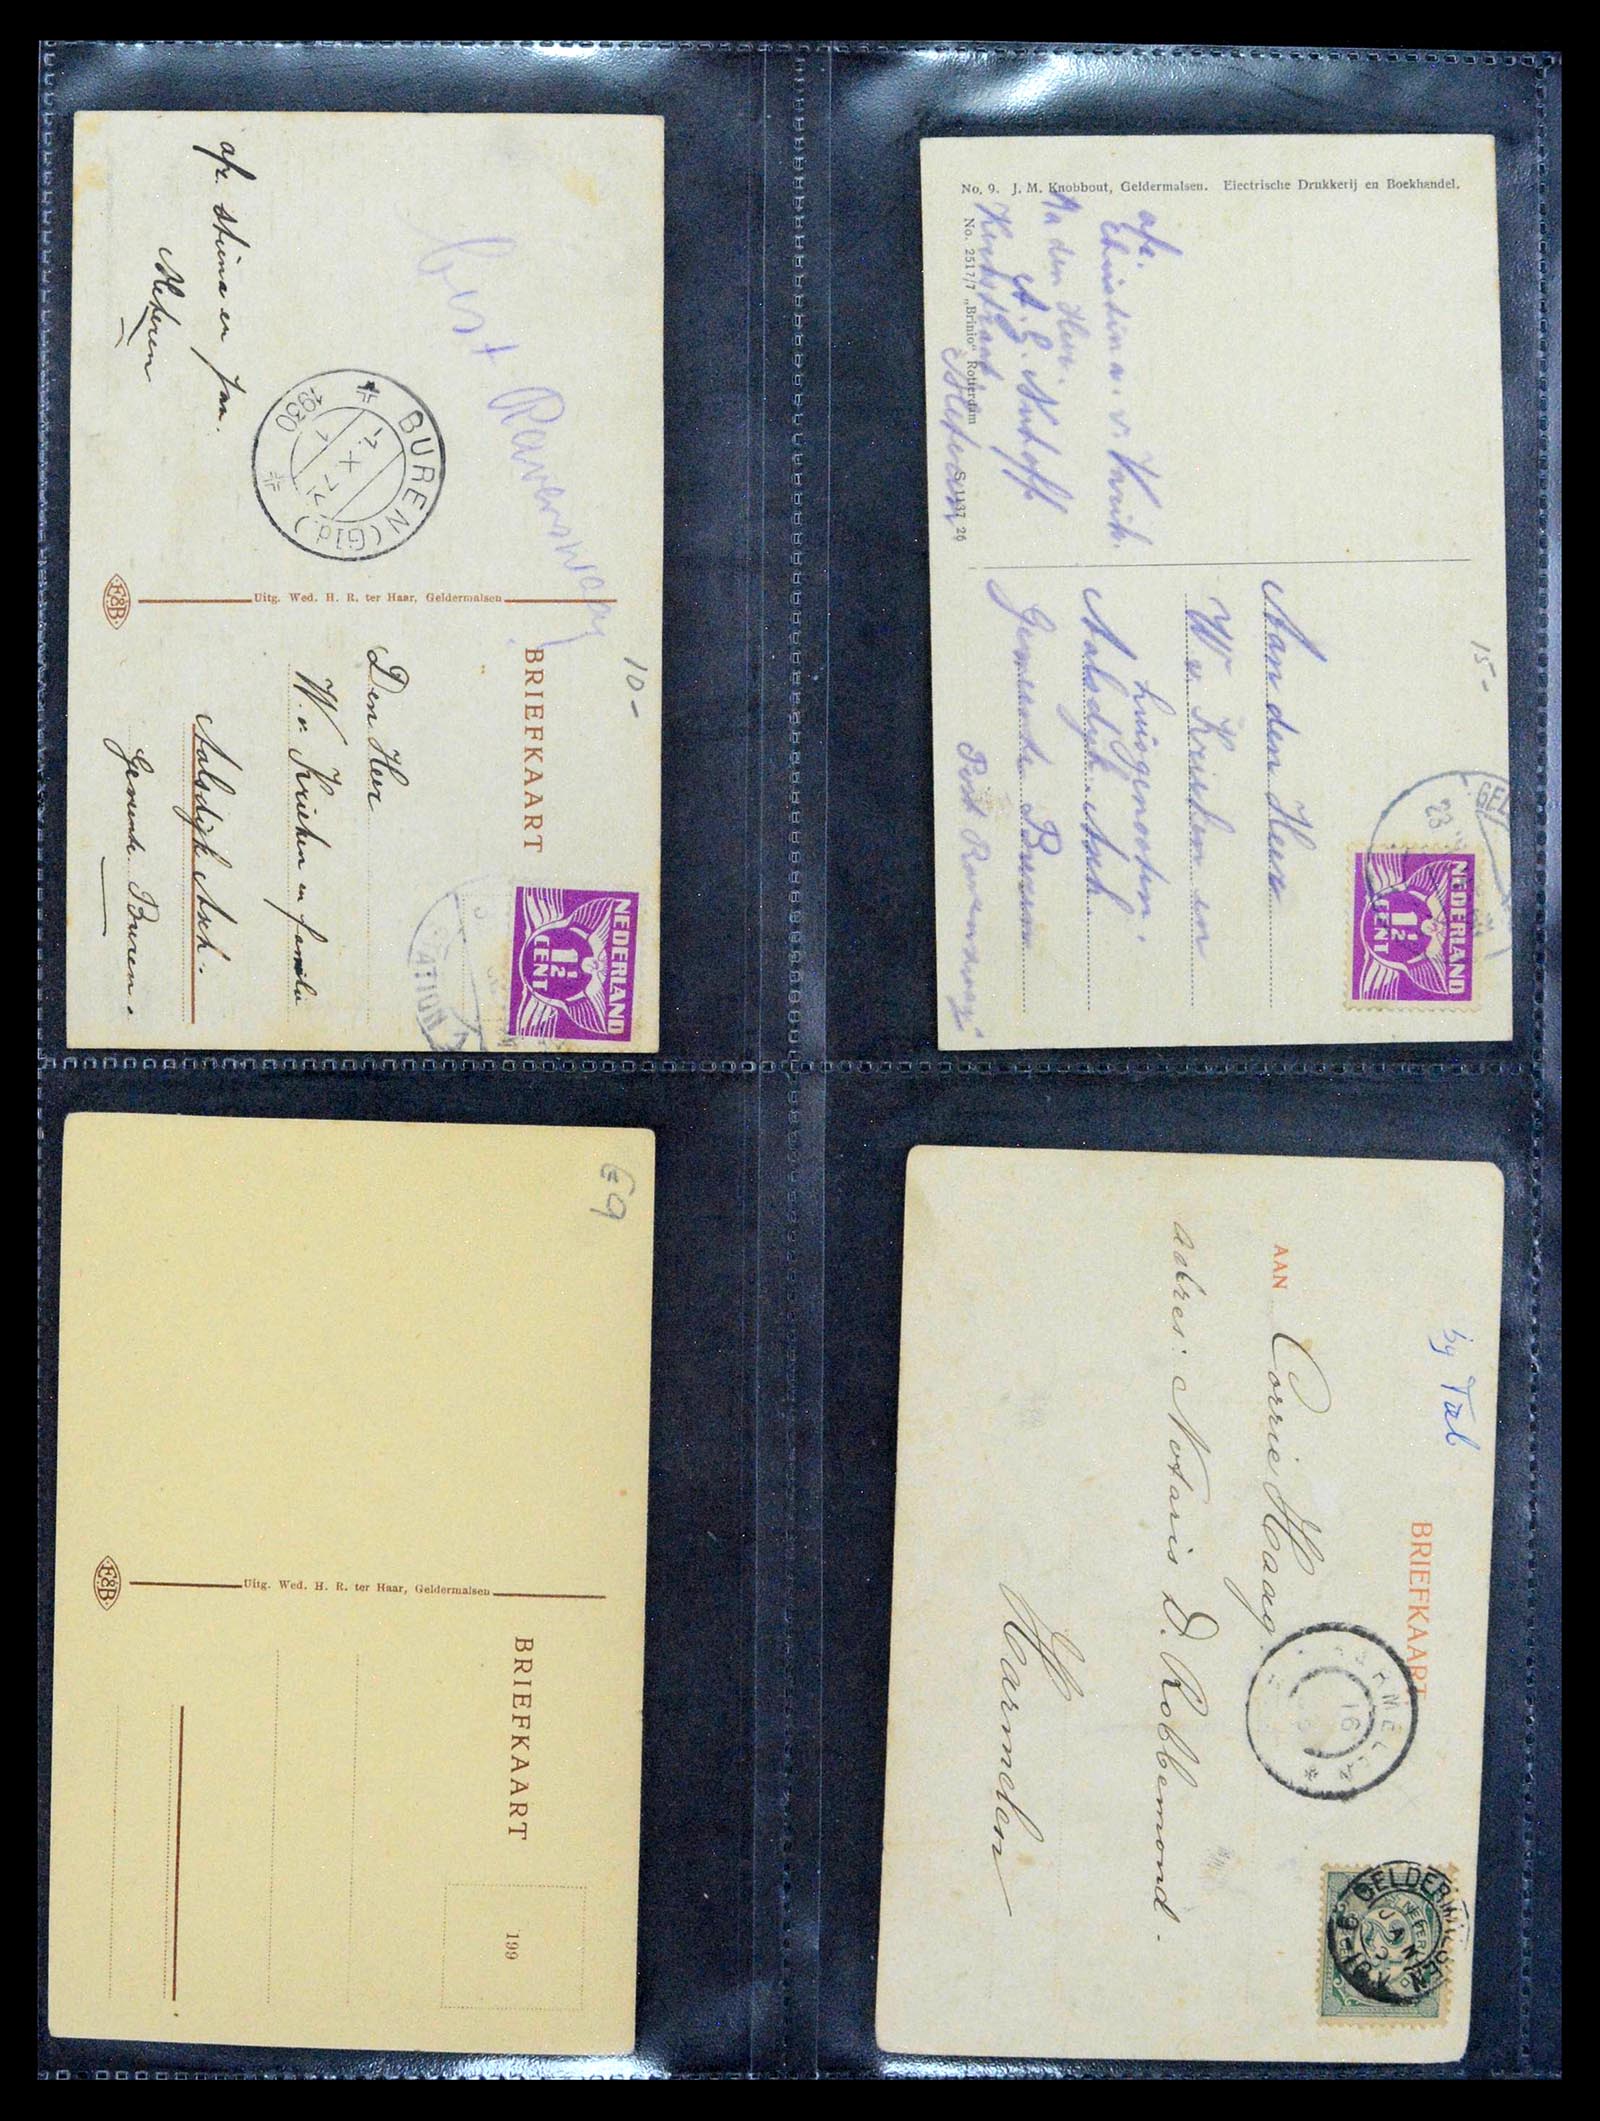 afz. Stiena en Jan.
Meteren
Post Ravenswaay
BUREN (Gld.)
1930
Uitg. Wed. H. R. ter Haar, Geldermalsen
E&B
BRIEFKAART
10-
Den Heer
W. v. Krieken en familie
Aalsdijk Asch.
Gemeente Buren.
NEDERLAND
1½
CENT
STATION
No. 9. J. M. Knobbout, Geldermalsen. Electrische Drukkerij en Boekhandel.
No. 2517/7 „Brinio" Rotterdam
S 1137 26
afz.
Christina v.
Aa den Heer.
Kerkstraat
Meteren
15-
Aan den Heer
W v. Krieken en
huisgenooten.
Aalsdijk Asch.
Gemeente Buren
Post Ravenswaaij
GEL
23
NEDERLAND
1½
CENT
E9
Uitg. Wed. H. R. ter Haar, Geldermalsen
E&B
BRIEFKAART
199
bij Tal
BRIEFKAART
AAN Corrie Haag
adres: Notaris D. Robbemond.
Harmelen
HARMELEN
16
GELDERMALSEN
JAN